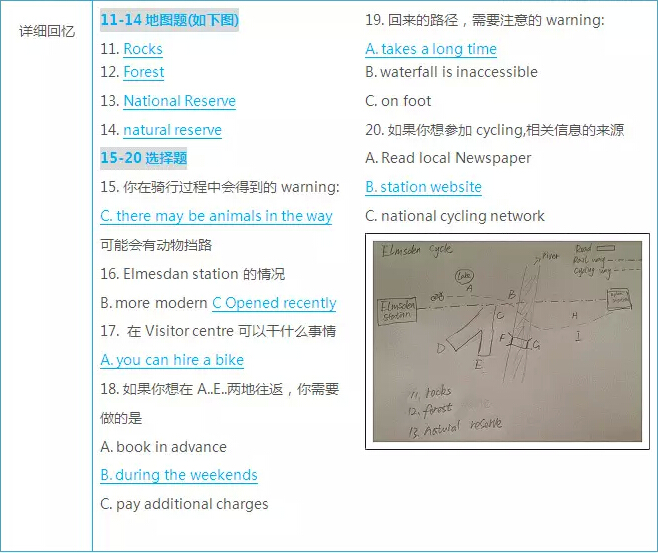 详细回忆
11-14 地图题(如下图)
11. Rocks
12. Forest
13. National Reserve
14. natural reserve
15-20 选择题
15. 你在骑行过程中会得到的 warning:
C. there may be animals in the way
可能会有动物挡路
16. Elmesdan station 的情况
B. more modern C Opened recently
17. 在 Visitor centre 可以干什么事情
A. you can hire a bike
18. 如果你想在 A..E..两地往返，你需要
做的是
A. book in advance
B. during the weekends
C. pay additional charges
19. 回来的路径，需要注意的 warning:
A. takes a long time
B. waterfall is inaccessible
C. on foot
20. 如果你想参加 cycling,相关信息的来源
A. Read local Newspaper
B. station website
C. national cycling network
Elmsden Cycle
River
Road
Rail way
Cycling way
Lake
A
B
Elmsden
station
C
H
D
F
G
I
E
11. rocks
12. forest
13. Natural reserve